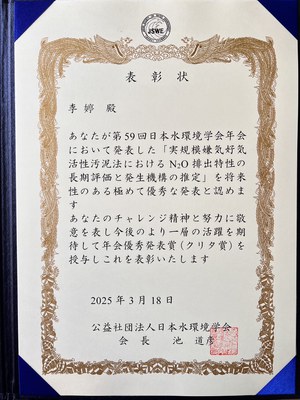 JSWE
表彰状
李婷 殿
あなたが第59回日本水環境学会年会
において発表した「実規模嫌気好気
活性汚泥法におけるN₂O排出特性の
長期評価と発生機構の推定」を将来
性のある極めて優秀な発表と認めま
す
あなたのチャレンジ精神と努力に敬
意を表し今後のより一層の活躍を期
待して年会優秀発表賞（クリタ賞）を
授与しこれを表彰いたします
2025年3月18日
公益社団法人日本水環境学会
会長 池 道彦